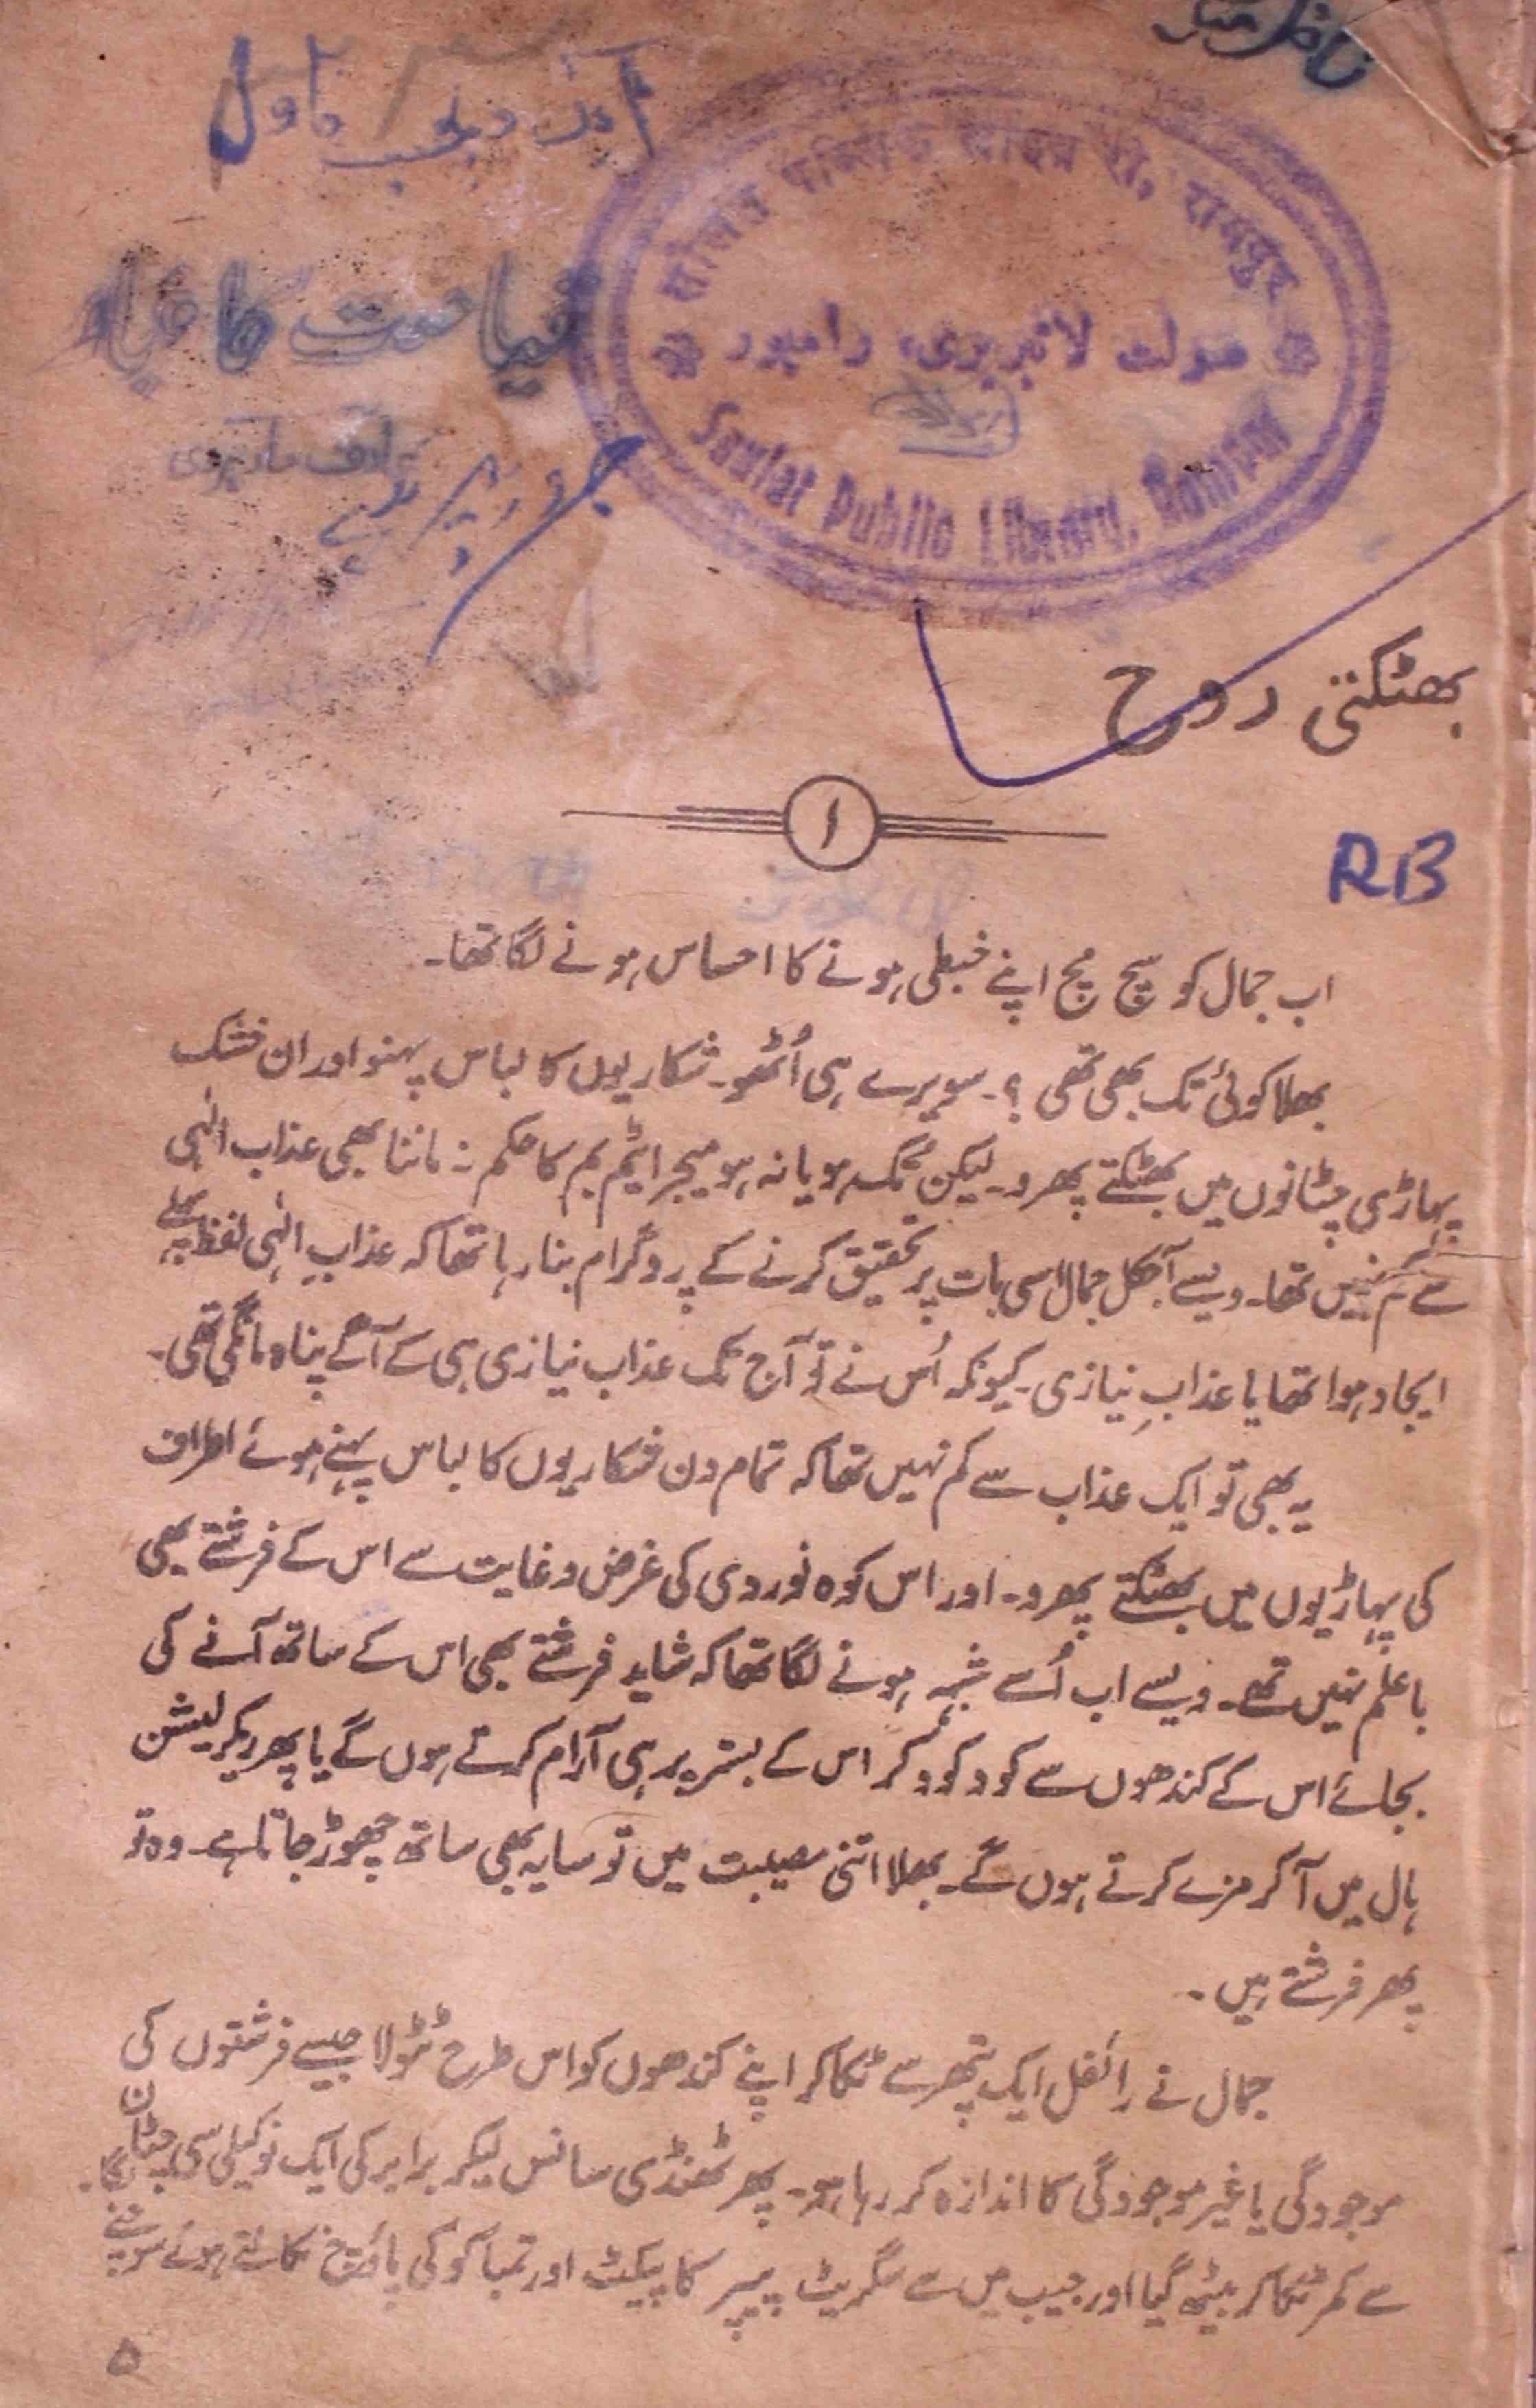 ایک دلچسپ ناول
قیامت کا
عارف مارہروی
सौलत पब्लिक लाइब्रेरी, रामपुर
صولت لائبریری، رامپور
Saulat Public Library, Rampur
بھٹکتی روح
۱
RB
اب جمال کو سچ مچ اپنے خبطی ہونے کا احساس ہونے لگا تھا۔
بھلا کوئی تک بھی تھی ؟۔ سویرے ہی اُٹھو۔ شکاریوں کا لباس پہنو اور ان خشک
پہاڑی چٹانوں میں بھٹکتے پھرو۔ لیکن تُک ہو یا نہ ہو میجر ایٹم بم کا حکم نہ ماننا بھی عذاب الٰہی
سے کم نہیں تھا۔ ویسے آجکل جمال اسی بات پر تحقیق کرنے کے پروگرام بنا رہا تھا کہ عذابِ الٰہی لفظ پہلے
ایجاد ہوا تھا یا عذابِ نیازی۔ کیونکہ اُس نے تو آج تک عذاب نیازی ہی کے آگے پناہ مانگی تھی۔
یہ بھی تو ایک عذاب سے کم نہیں تھا کہ تمام دن شکاریوں کا لباس پہنے ہوئے اطراف
کی پہاڑیوں میں بھٹکتے پھرو۔ اور اس کوہ نوردی کی غرض و غایت سے اس کے فرشتے بھی
باعلم نہیں تھے۔ ویسے اب اُسے شبہ ہونے لگا تھا کہ شاید فرشتے بھی اس کے ساتھ آنے کی
بجائے اس کے کندھوں سے کود کود کر اس کے بستر پر ہی آرام کرتے ہوں گے یا پھر ریکرلیشن
ہال میں آکر مزے کرتے ہوں گے۔ بھلا اتنی مصیبت میں تو سایہ بھی ساتھ چھوڑ جاتا ہے۔ وہ تو
پھر فرشتے ہیں۔
جمال نے رائفل ایک پتھر سے ٹکا کر اپنے کندھوں کو اس طرح ٹٹولا جیسے فرشتوں کی
موجودگی یا غیر موجودگی کا اندازہ کر رہا ہو۔ پھر ٹھنڈی سانس لیکر برابر کی ایک نوکیلی سی چٹان
سے کمر ٹکا کر بیٹھ گیا اور جیب میں سے سگریٹ پیپر کا پیکٹ اور تمباکو کی پاؤچ نکالتے ہوئے سوچنے لگا۔
۵